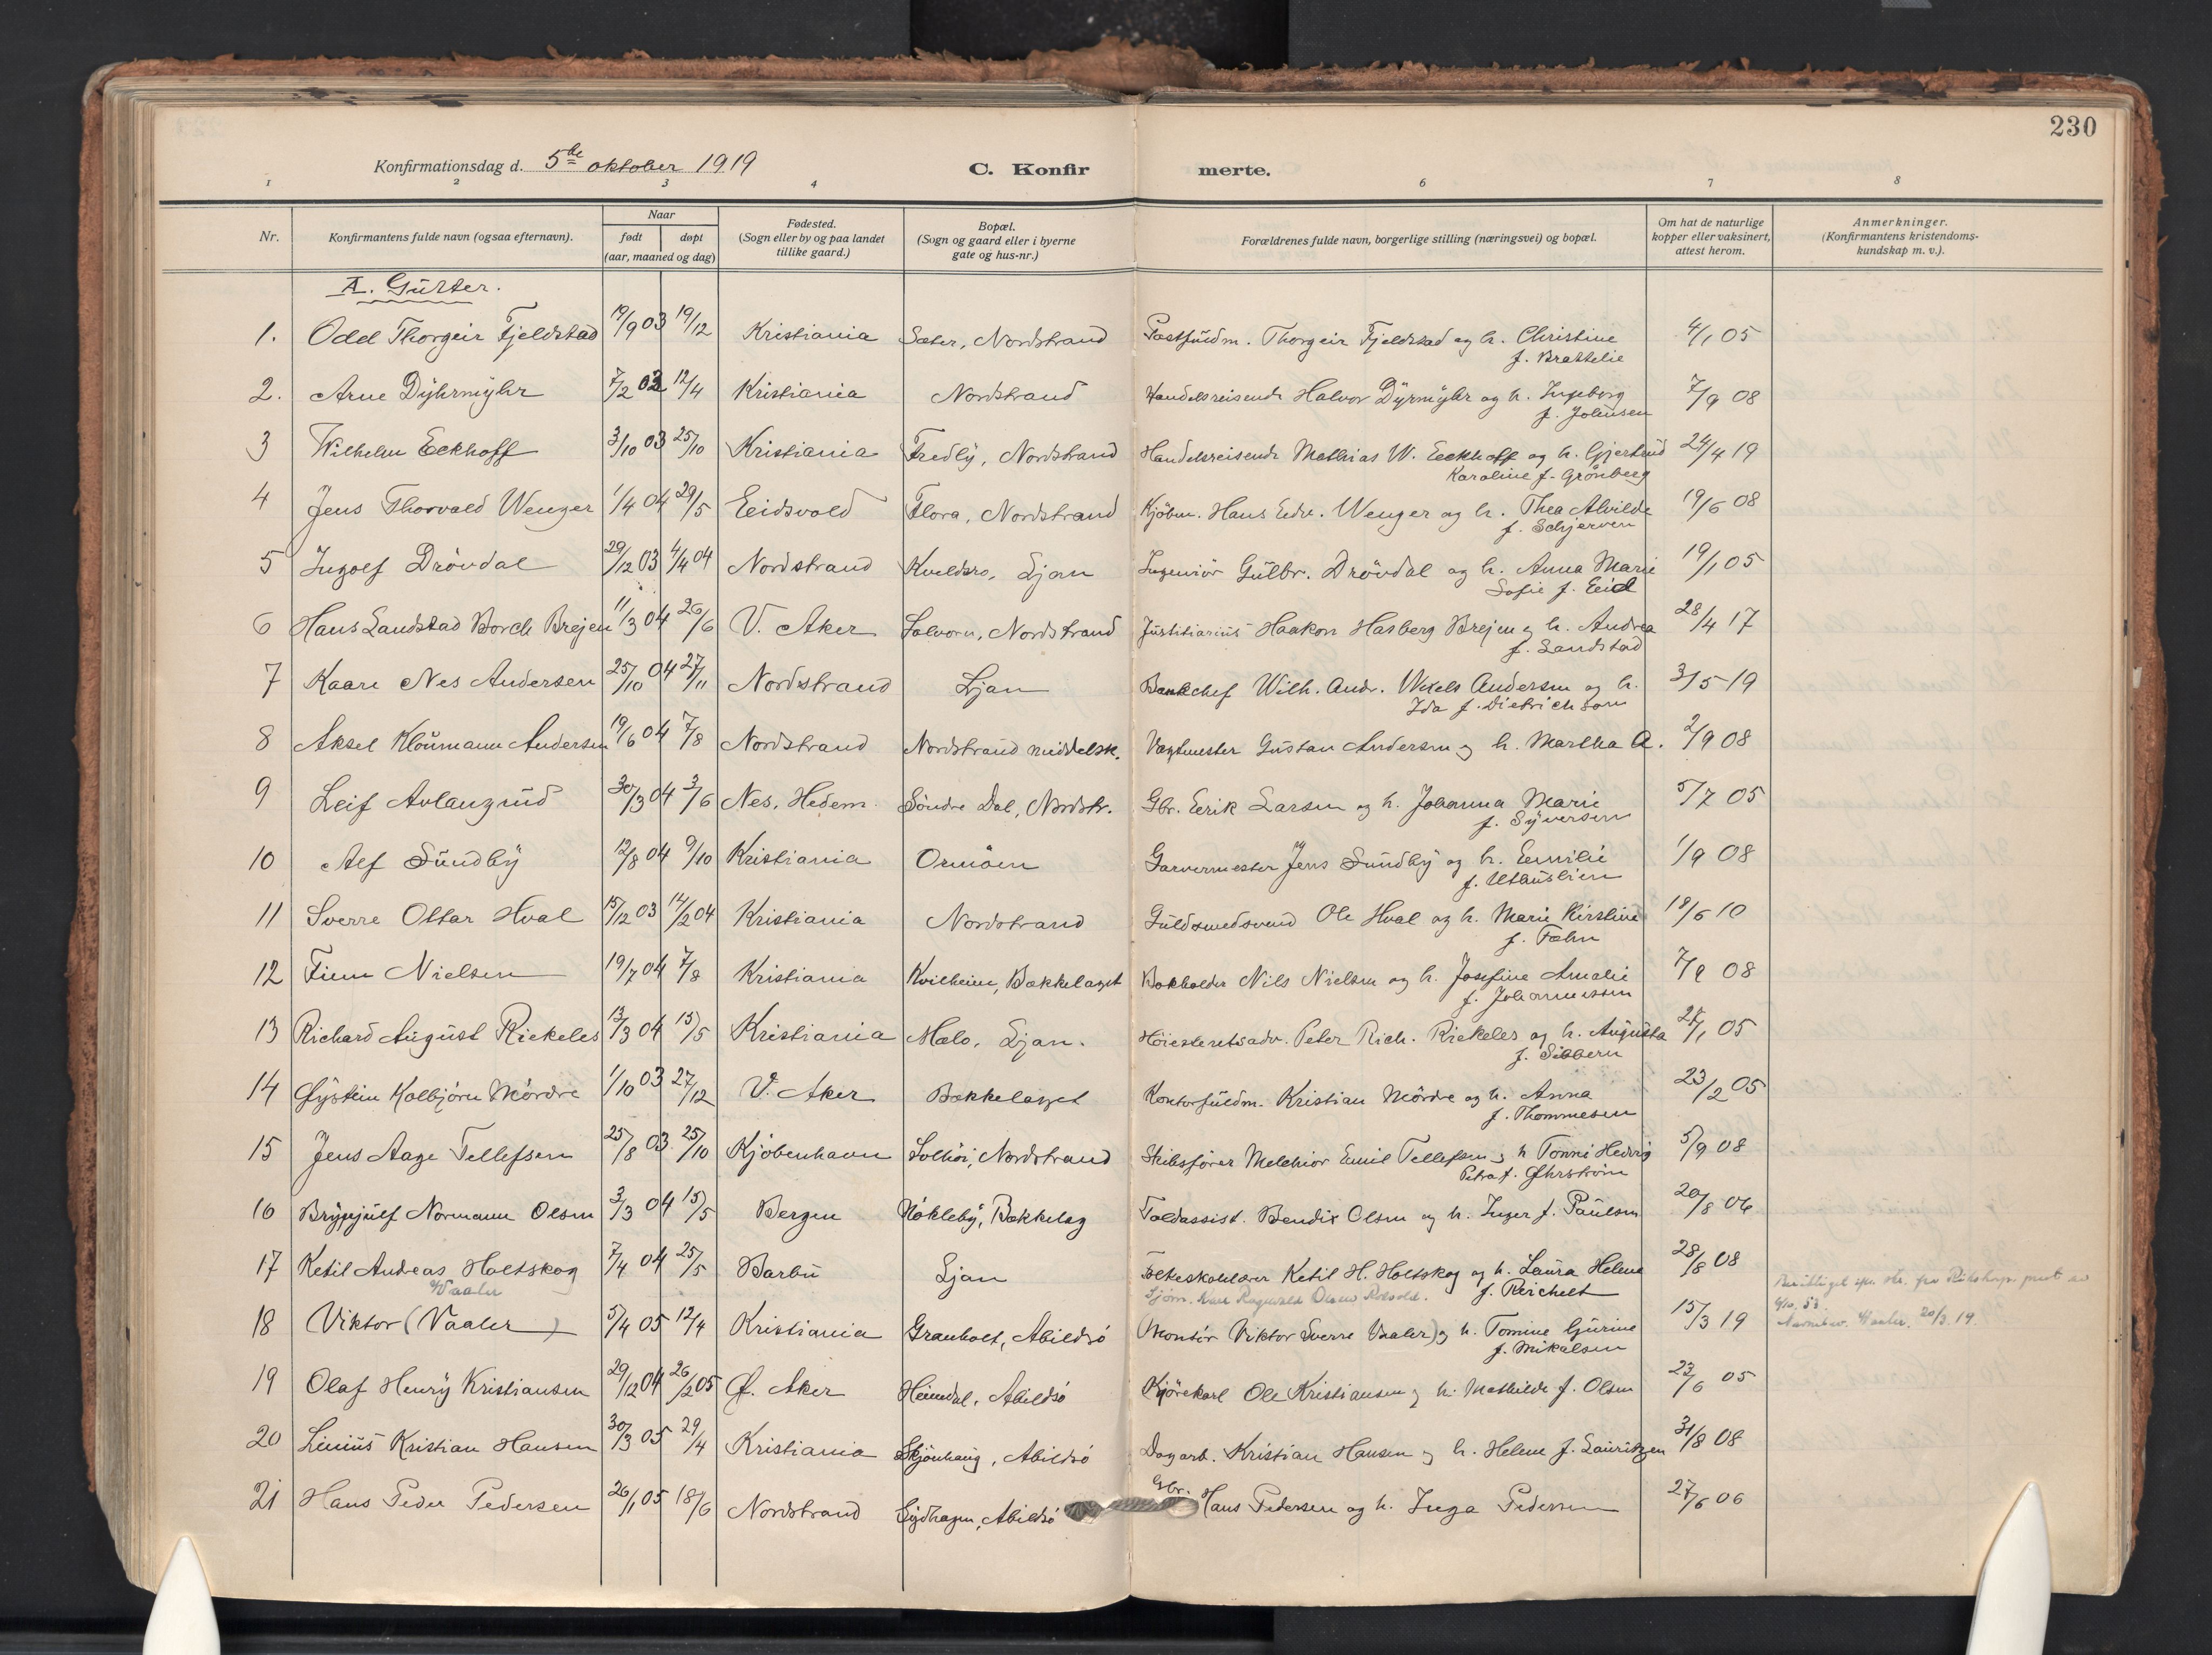 230
Konfirmationsdag d. 5te oktober 1919 C. Konfir merte.
1 2 3 4 6 7 8
Nr. Konfirmantens fulde navn (ogsaa efternavn). Naar født døpt (aar, maaned og dag) Fødested. (Sogn eller by og paa landet tillike gaard.) Bopæl. (Sogn og gaard eller i byerne gate og hus-nr.) Forældrenes fulde navn, borgerlige stilling (næringsvei) og bopæl. Om hat de naturlige kopper eller vaksinert, attest herom. Anmerkninger. (Konfirmantens kristendoms- kundskap m. v.).
A. Gutter.
1. Odd Thorgeir Fjeldstad 19/9 03 19/12 Kristiania Sæter, Nordstrand Postfuldm. Thorgeir Fjeldstad og h. Christine 4/1 05
f. Brattelie
2. Arne Dyhrmyhr 7/2 03 12/4 Kristiania Nordstrand Handelsreisende Halvor Dyrmyhr og h. Ingeborg 7/9 08
f. Johnsen
3 Wilhelm Eckhoff 3/10 03 25/10 Kristiania Fredly, Nordstrand Handelsreisende Mathias W. Eeckhoff og h. Gjertrud 24/4 19
Karoline f. Grönberg
4 Jens Thorvald Wenger 1/4 04 29/5 Eidsvold Flora, Nordstrand Kjöbm. Hans Edv. Wenger og h. Thea Alvilde 19/6 08
f. Schjerven
5 Ingolf Drövdal 29/12 03 4/4 04 Nordstrand Kveldsro, Ljan Ingeniör Gulbr. Drövdal og h. Anna Marie 19/1 05
Sofie f. Eid
6 Hans Landstad Borch Brejen 11/3 04 26/6 V. Aker Solvorn, Nordstrand Justitiarius Haakon Hasberg Brejen og h. Andrea 28/4 17
f. Landstad
7 Kaare Nes Andersen 25/10 04 27/11 Nordstrand Ljan Bankchef Wilh. Andr. Wexels Andersen og h. 3/5 19
Ida f. Dietrichson
8 Aksel Kloumann Andersen 19/6 04 7/8 Nordstrand Nordstrand middelsk. Vagtmester Gustav Andersen og h. Martha A. 2/9 08
9 Leif Avlangrud 30/3 04 3/6 Nes, Hedem. Söndre Dal, Nordstr. Gbr. Eerik Larsen og h. Johanna Marie 5/7 05
f. Syversen
10 Alf Sundby 12/8 04 9/10 Kristiania Ormöen Garvermester Jens Sundby og h. Emilie 1/9 08
f. Uthuslien
11 Sverre Ottar Hval 15/12 03 14/2 04 Kristiania Nordstrand Guldsmedsvend Ole Hval og h. Marie Kirstine 18/6 10
f. Fæhn
12 Finn Nielsen 19/7 04 7/8 Kristiania Kvilheim, Bækkelaget Bokholder Nils Nielsen og h. Josefine Amalie 7/9 08
f. Johannessen
13 Richard August Riekeles 13/3 04 15/5 Kristiania Malo, Ljan. Höiesteretsadv. Peter Rich. Riekeles og h. Augusta 27/1 05
f. Sibbern
14 Øystein Kolbjörn Mördre 1/10 03 27/12 V. Aker Bækkelaget Kontorfuldm. Kristian Mördre og h. Anna 23/2 05
f. Thommesen
15 Jens Aage Tellefsen 25/8 03 25/10 Kjöbenhavn Solhöi, Nordstrand Skibsförer Melchior Emil Tellefsen og h. Tonni Hedvig 5/9 08
Petra f. Øhrström
16 Brynjulf Normann Olsen 3/3 04 15/5 Bergen Nökleby, Bækkelag Toldassist. Bendix Olsen og h. Inger f. Paulsen 20/8 06
17 Ketil Andreas Holtskog 7/4 04 25/5 Barbu Ljan Folkeskolelærer Ketil H. Holtskog og h. Laura Helene 28/8 08
f. Reichelt
Vaaler
18 Viktor (Vaaler) 5/4 05 12/4 Kristiania Granholt, Abildsö Montör Viktor Sverre Vaaler) og h. Tomine Gurine 15/3 19
f. Mikalsen
19 Olaf Henry Kristiansen 29/12 04 26/2 05 Ø. Aker Heimdal, Abildsö Kjörekarl Ole Kristiansen og h. Mathilde f. Olsen 23/6 05
20 Linius Kristian Hansen 30/3 05 29/4 Kristiania Skjönhaug, Abildsö Dagarb. Kristian Hansen og h. Helene f. Lauritzen 31/8 08
21 Hans Peder Pedersen 26/1 05 18/6 Nordstrand Eydhagen, Abildsö Gbr. Hans Pedersen og h. Inga Pedersen 27/6 06